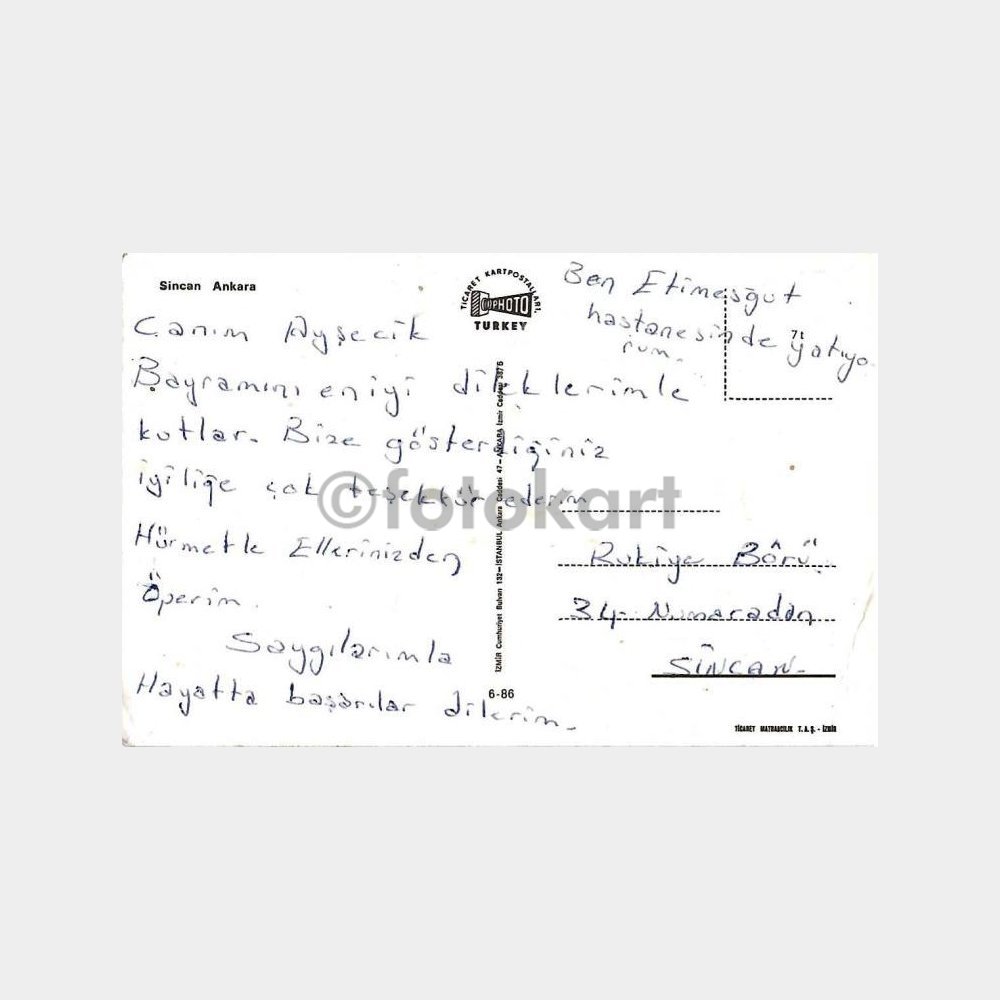 Sincan Ankara
TİCARET KARTPOSTALLARI,
PHOTO
TURKEY
Ben Etimesğut
hastanesinde yatıyo
rum.
7t
Canım Ayşecik
Bayramını en iyi dileklerimle
kutlar. Bize gösterdiğiniz
iyiliğe çok teşekkür ederim
Hürmetle Ellerinizden
Öperim.
Saygılarımla
Hayatta başarılar dilerim.
©fotokart
İZMİR Cumhuriyet Bulvarı 132-İSTANBUL Ankara Caddesi 47-ANKARA İzmir Caddesi
6-86
Rukiye Börü
34 Numaradan
SİNCAN-
TİCARET MATBAACILIK T.A.Ş.-İZMİR